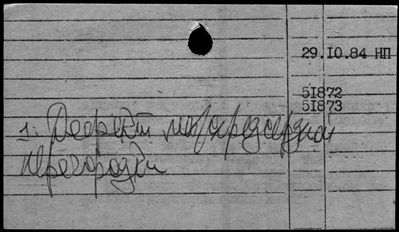 29.10.84 НП
51872
51873
1. Дефект межпредсердной
перегородки